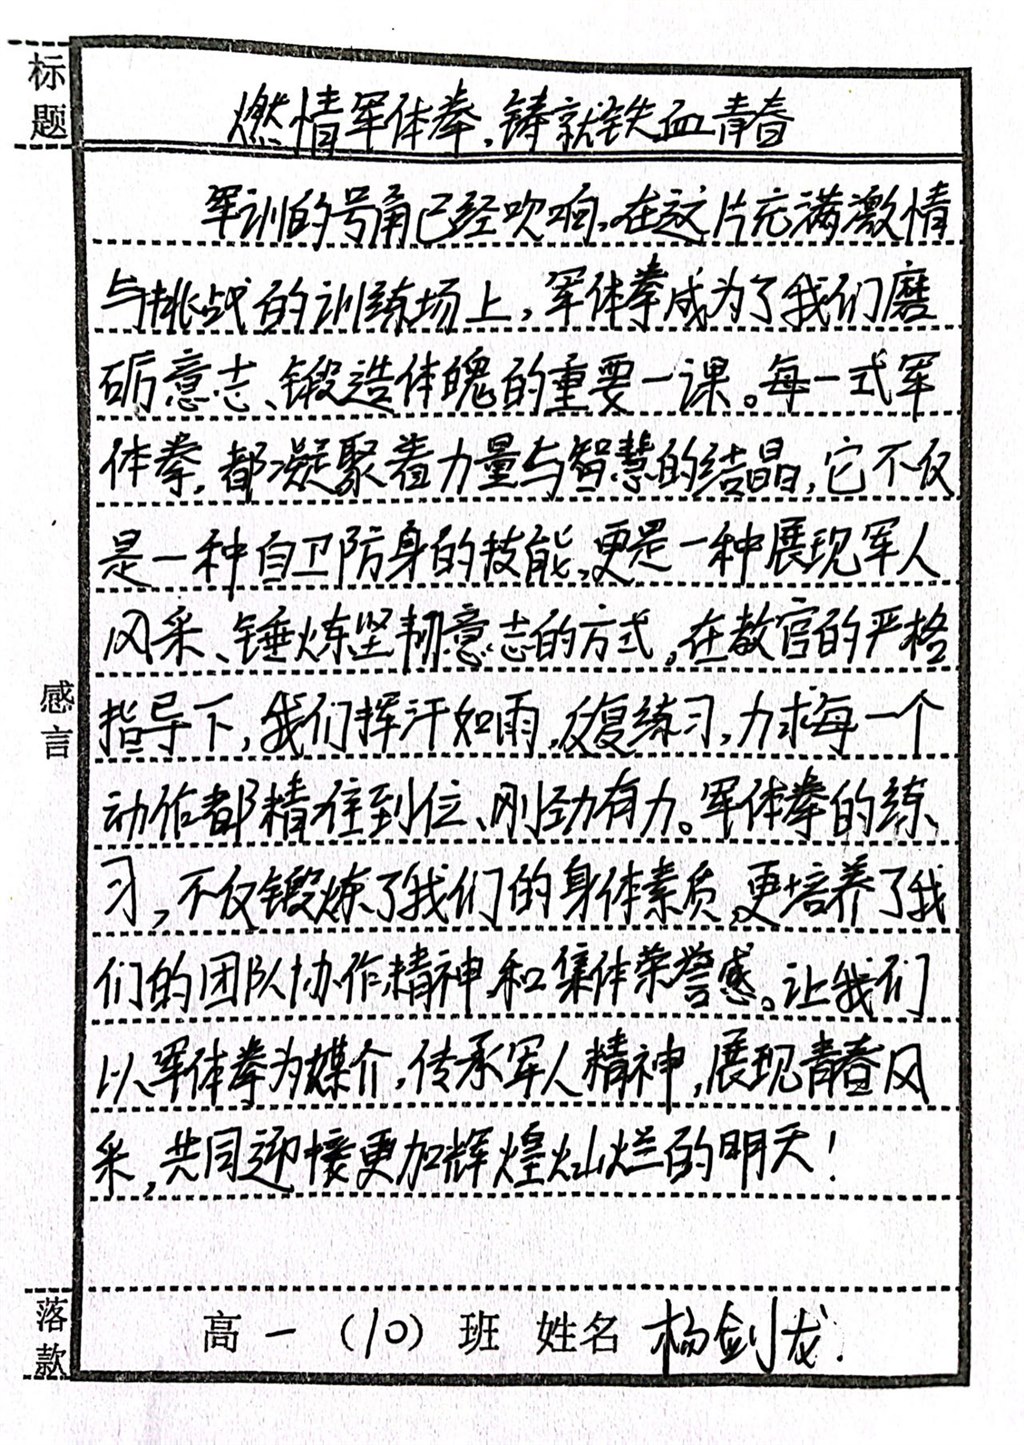 标题
燃情军体拳,铸就铁血青春
军训的号角已经吹响,在这片充满激情
与挑战的训练场上,军体拳成为了我们磨
砺意志、锻造体魄的重要一课。每一式军
体拳,都凝聚着力量与智慧的结晶,它不仅
是一种自卫防身的技能,更是一种展现军人
风采、锤炼坚韧意志的方式,在教官的严格
指导下,我们挥汗如雨,反复练习,力求每一个
动作都精准到位、刚劲有力。军体拳的练
习,不仅锻炼了我们的身体素质,更培养了我
们的团队协作精神和集体荣誉感。让我们
以军体拳为媒介,传承军人精神,展现青春风
采,共同迎接更加辉煌灿烂的明天!
感言
落款
高一(10)班 姓名 杨剑龙.